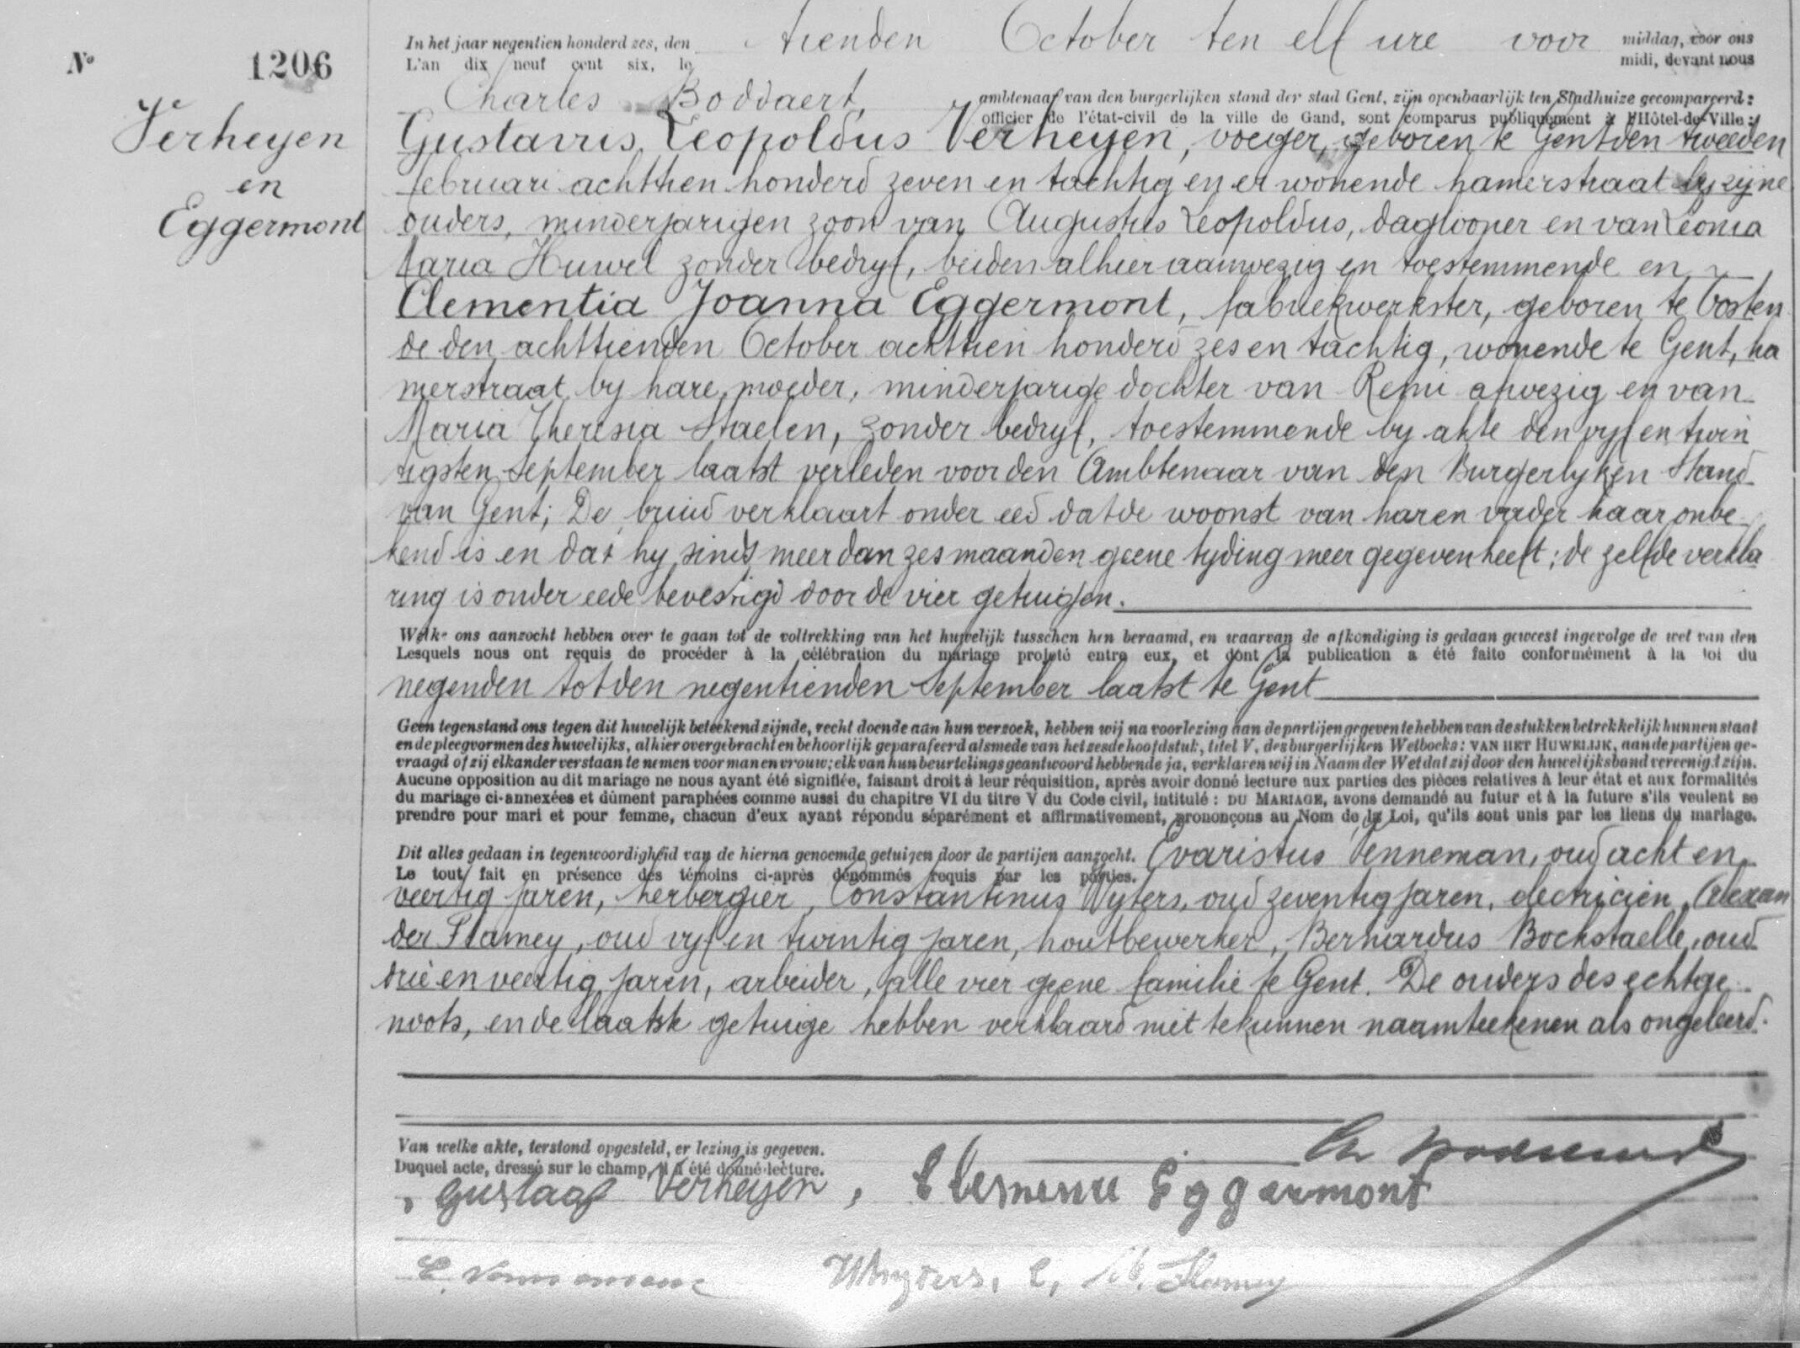 No 1206
Verheyen
en
Eggermont
In het jaar negentien honderd zes, den tienden October ten elf ure voor middag, voor ons
L'an dix neuf cent six, le midi, devant nous
Charles Boddaert, ambtenaar van den burgerlijken stand der stad Gent, zijn openbaarlijk ten Stadhuize gecompareerd:
officier de l'état-civil de la ville de Gand, sont comparus publiquement à l'Hôtel-de-Ville:
Gustavus, Leopoldus Verheyen, voeger, geboren te Gent den tweeden
februari achttien honderd zeven en tachtig en er wonende hamerstraat by zijne
ouders, minderjarigen zoon van Augustus Leopoldus, daglooner en van Leonia
Maria Huwel zonder bedryf, beiden alhier aanwezig en toestemmende en
Clementia Joanna Eggermont, fabriekwerkster, geboren te Oosten
de den achttienden October achttien honderd zes en tachtig, wonende te Gent, ha
merstraat by hare moeder, minderjarige dochter van Remi afwezig en van
Maria Theresia Staelen, zonder bedryf, toestemmende by akte den vyf en twin
tigsten September laatst verleden voor den Ambtenaar van den Burgerlyken Stand
van Gent; De bruid verklaart onder eed dat de woonst van haren vader haar onbe-
kend is en dat hy sinds meer dan zes maanden geene tyding meer gegeven heeft; de zelfde verkla
ring is onder eede bevestigd door de vier getuigen.
Welke ons aanzocht hebben over te gaan tot de voltrekking van het huwelijk tusschen hen beraamd, en waarvan de afkondiging is gedaan geweest ingevolge de wet van den
Lesquels nous ont requis de procéder à la célébration du mariage projeté entre eux, et dont la publication a été faite conformément à la loi du
negenden tot den negentienden September laatst te Gent
Geen tegenstand ons tegen dit huwelijk beteekend zijnde, recht doende aan hun verzoek, hebben wij na voorlezing aan de partijen gegeven te hebben van de stukken betrekkelijk hunnen staat
en de pleegvormen des huwelijks, alhier overgebracht en behoorlijk geparafeerd alsmede van het zesde hoofdstuk, titel V, des burgerlijken Wetboeks: VAN HET HUWELIJK, aan de partijen ge-
vraagd of zij elkander verstaan te nemen voor man en vrouw; elk van hun beurtelings geantwoord hebbende ja, verklaren wij in Naam der Wet dat zij door den huwelijksband vereenigd zijn.
Aucune opposition au dit mariage ne nous ayant été signifiée, faisant droit à leur réquisition, après avoir donné lecture aux parties des pièces relatives à leur état et aux formalités
du mariage ci-annexées et dûment paraphées comme aussi du chapitre VI du titre V du Code civil, intitulé: DU MARIAGE, avons demandé au futur et à la future s'ils veulent se
prendre pour mari et pour femme, chacun d'eux ayant répondu séparément et affirmativement, prononçons au Nom de la Loi, qu'ils sont unis par les liens du mariage.
Dit alles gedaan in tegenwoordigheid van de hierna genoemde getuigen door de partijen aanzocht. Evaristus Venneman, oud acht en
Le tout fait en présence des témoins ci-après dénommés requis par les parties.
veertig jaren, herbergier, Constantinus Wyters, oud zeventig jaren, electricien, Alexan
der Flamey, oud vyf en twintig jaren, houtbewerker, Bernardus Bockstaelle, oud
drie en veertig jaren, arbeider, alle vier geene familie te Gent. De ouders des echtge-
noots, en de laatste getuige hebben verklaard niet te kunnen naamteekenen als ongeleerd.
Van welke akte, terstond opgesteld, er lezing is gegeven.
Duquel acte, dressé sur le champ, il a été donné lecture.
Gustaaf Verheyen, Eggermont